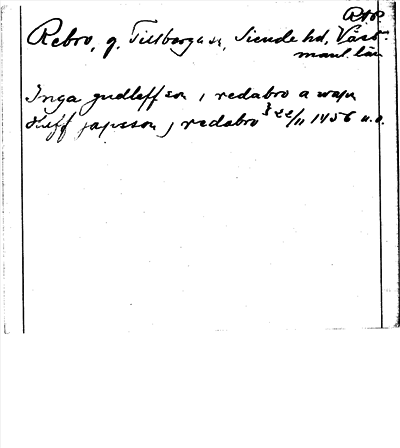 RAP.
Rebro, g. Tillberga sn, Siende hd, Väst-
manl. län
Inga gudleffson i redabro a waпn
Kieff japsson j redabro 22/11 1456 u.o.